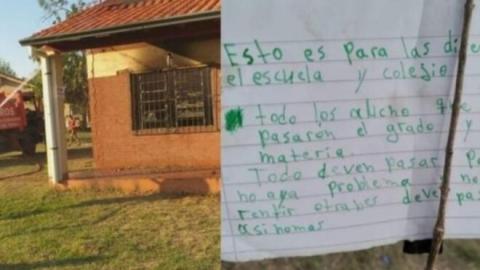 ROS
Esto es para las di
el escuela y colegio
todo los alucho que
pasaron el grado y
materia.
Todo deven pasar Pa
no aya problema ne
rentir otraves deve pas
asinomas